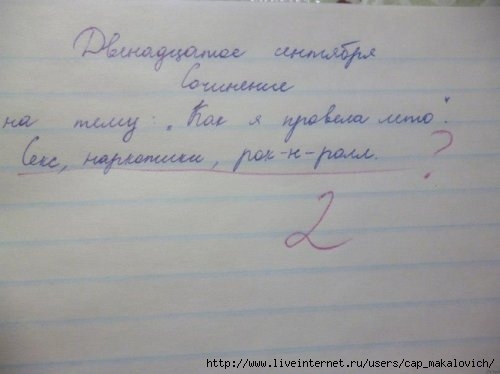 Двенадцатое сентября
Сочинение
на тему: „Как я провела лето".
Секс, наркотики, рок-н-ролл. ?
2
http://www.liveinternet.ru/users/cap_makalovich/